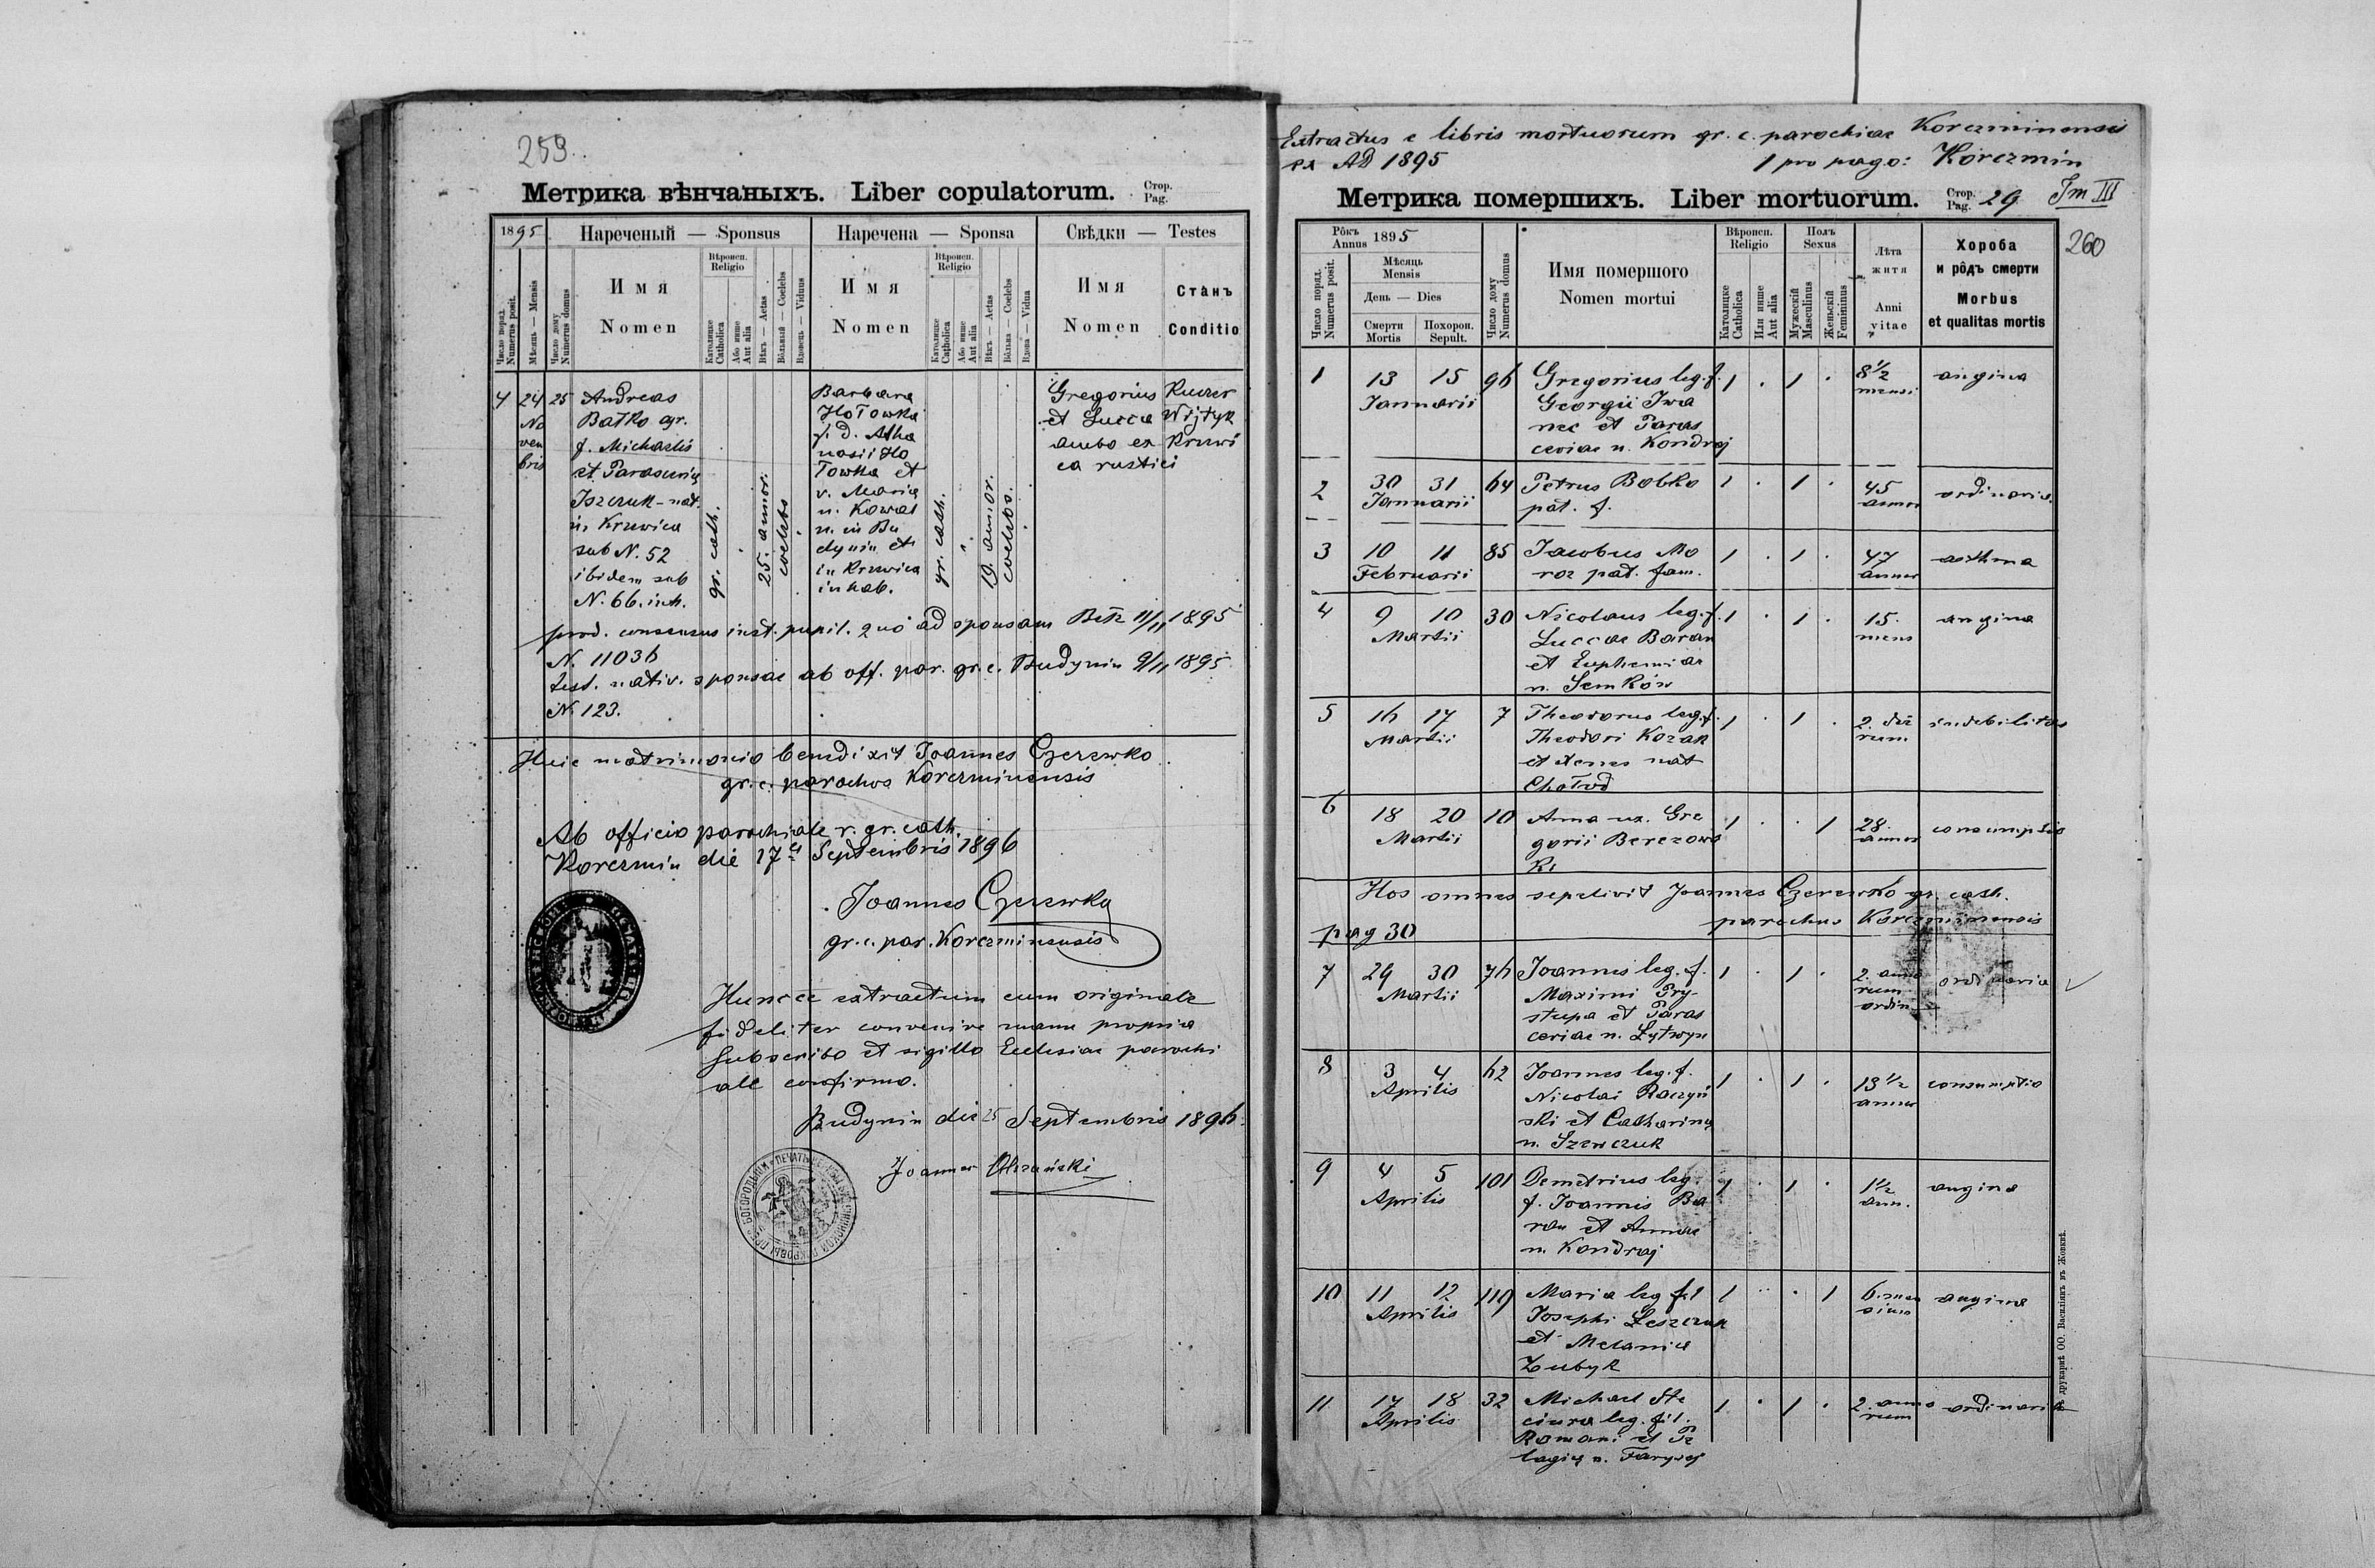 259.
Метрика вѣнчаныхъ. Liber copulatorum. Стор. Pag.
1895 Нареченый — Sponsus Наречена — Sponsa Свѣдки — Testes
Число поряд. Numerus posit.
Мѣсяць — Mensis
Число дому Numerus domus
Имя Nomen
Вѣроисп. Religio
Католицке Catholica
Або инше Aut alia
Вѣкъ — Aetas
Вôльный — Coelebs
Вдовець — Viduus
Имя Nomen
Вѣроисп. Religio
Католицке Catholica
Або инше Aut alia
Вѣкъ — Aetas
Вôльна — Coelebs
Вдова — Vidua
Имя Nomen
Станъ Conditio
4 24 25
No
vem
bris
Andreas
Batko agr.
f. Michaelis
et Parasceviae
Iszczuk - nat.
in Krzewica
sub N. 52
ibidem sub
N. 66. inh.
gr. cath.
25. annor.
coelebs
Barbara
Hołowka
f. d. Atha
nasii Ho
łowka et
v. Maria
n. Kowal
n. in Bu
dynin et
in Krzewica
inhab.
gr. cath.
19. annor.
coelebs.
Gregorius Kuczer
et Lucca Wijtyk
ambo ex Krzewi
ca rustici
prod. consensus inst. pupil. quo ad sponsam Bełz 11/11 1895
N. 11036
test. nativ. sponsae ab off. par. gr. c. Budynin 9/11 1895
N. 123.
Huic matrimonio benedixit Joannes Czerewko
gr. c. parochus Korczminensis
Ab officio parochiale r. gr. cath.
Korczmin die 17 Septembris 1896
Joannes Czerewko
gr. c. par. Korczminensis
Huncce extractum cum originale
fideliter convenire manu propria
subscribo et sigillo Ecclesiae parochi
ale confirmo.
Budynin die 25 Septembris 1896.
Joannes
Extractus e libris mortuorum gr. c. parochiae Korczminensis
ex AD 1895 1 pro pago: Korczmin
Метрика померших. Liber mortuorum. Стор. Pag. 29 Tm III
260
Рôкъ Annus 1895
Число поряд. Numerus posit.
Мѣсяць Mensis
День — Dies
Смерти Mortis
Похорон. Sepult.
Число дому Numerus domus
Имя помершого
Nomen mortui
Вѣроисп. Religio
Католицке Catholica
Или инше Aut alia
Полъ Sexus
Мужескій Masculinus
Женьскій Femininus
Лѣта житя
Anni vitae
Хороба и рôдъ смерти
Morbus et qualitas mortis
1 13 15 Januarii 96 Gregorius leg. f. 1 1 8 1/2 mensi angina
Georgii Iwa
nec et Paras
ceviae n. Kondraj
2 30 31 Januarii 64 Petrus Bobko 1 1 45 annor ordinaria
pat. f.
3 10 11 Februarii 85 Jacobus Mo 1 1 47 annor asthma
roz pat. fam.
4 9 10 Martii 30 Nicolaus leg. f. 1 1 15. mens angina
Luccae Baran
et Euphemiae
n. Semków
5 16 17 Martii 7 Theodorus leg. f. 1 1 2. die rum indebilitas
Theodori Kozak
et
6 18 20 Martii 10 Anna ux. Gre 1 1 28. annor consumptio
gorii Berezows
ki
Hos omnes sepelivit Joannes Czerewko gr. cath.
parochus Korczminensis
pag 30
7 29 30 Martii 76 Joannes leg. f. 1 1 2. anno rum ordin. ordinaria
Maximi Pry-
stupa et Paras
ceviae n. Lytwyn
8 3 4 Aprilis 62 Joannes leg. f. 1 1 13 1/2 annor consumptio
Nicolai Raczyń
ski et Catharina
n. Szewczuk
9 4 5 Aprilis 101 Demetrius leg. 1 1 1 1/2 ann. angina
f. Joannis Ba
ran et Annae
n. Kondraj
10 11 12 Aprilis 119 Maria leg. fil 1 1 6. men sium angina
Josephi Leszczuk
et Melania
Zubyk
11 17 18 Aprilis 32 Michael Ste 1 1 2. anno rum ordinaria
ciura leg. fil.
Romani et Pe
lagia n.
друкарнѣ ОО. Василіянъ въ Жовквѣ.